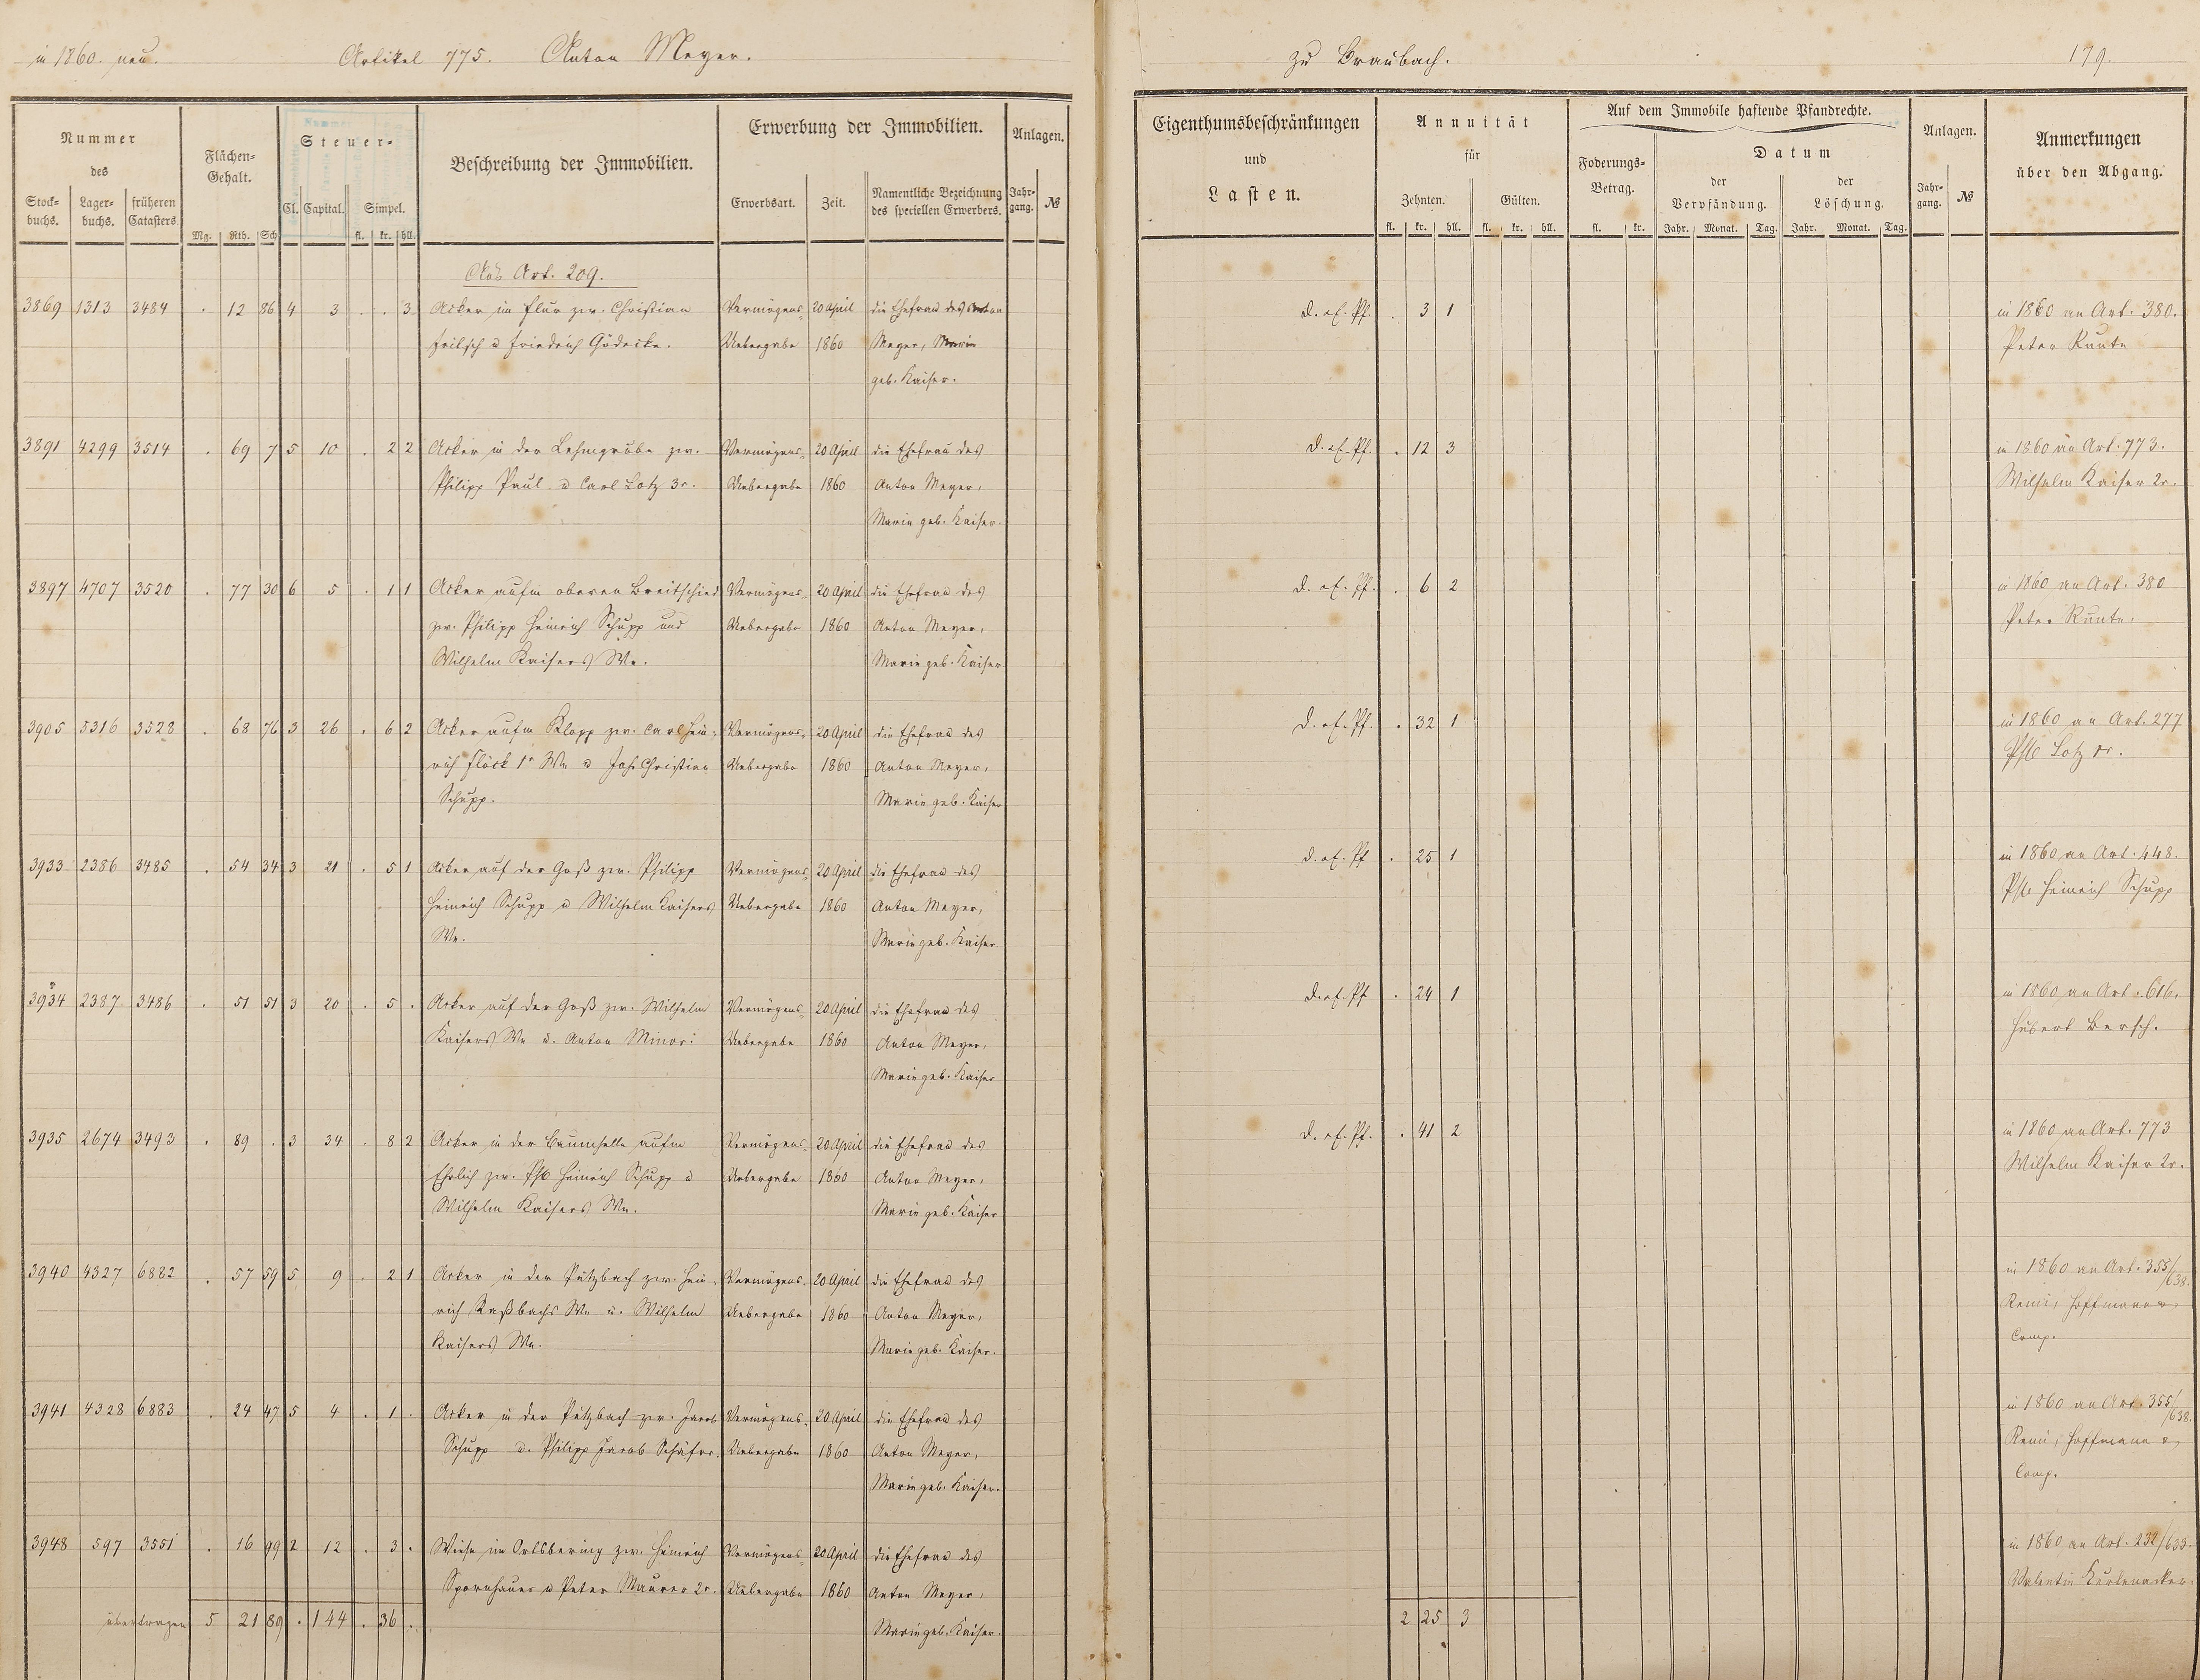 in 1860. neu. Artikel 775. Anton Meyer.
zu Braubach. 179.
Nummer
des
Stock-
buchs.
Lager-
buchs.
früheren
Catasters.
Flächen-
Gehalt.
Mg. Rth. Sch
Steuer-
Cl. Capital. Simpel.
fl. kr. hll.
Beschreibung der Immobilien.
Erwerbung der Immobilien.
Erwerbsart. Zeit. Namentliche Bezeichnung
des speciellen Erwerbers.
Anlagen.
Jahr-
gang. №
Eigenthumsbeschränkungen
und
Lasten.
Annuität
für
Zehnten. Gülten.
fl. kr. hll. fl. kr. hll.
Auf dem Immobile haftende Pfandrechte.
Foderungs-
Betrag.
fl. kr.
Datum
der
Verpfändung.
der
Löschung.
Jahr. Monat. Tag. Jahr. Monat. Tag.
Anlagen.
Jahr-
gang. №
Anmerkungen
über den Abgang.
Aus Art. 209.
3869 1313 3484 . 12 86 4 3 . . 3 Acker im Flur zw. Christian Vermögens- 20 April die Ehefrau des Anton d. ef. Pf. . 3 1 in 1860 an Art. 380.
Fritsch u Friedrich Gödecke. Uebergabe 1860 Meyer, Marie Peter Runte
geb. Kaiser.
3891 4299 3514 . 69 7 5 10 . 2 2 Acker in der Lehmgrube zw. Vermögens- 20 April die Ehefrau des d. ef. Pf. . 12 3 in 1860 an Art. 773.
Philipp Paul u Carl Lotz 3r. Uebergabe 1860 Anton Meyer, Wilhelm Kaiser 2r.
Marie geb. Kaiser.
3897 4707 3520 . 77 30 6 5 . 1 1 Acker aufm oberen Breitschied Vermögens- 20 April die Ehefrau des d. ef. Pf. . 6 2 in 1860 an Art. 380
zw. Philipp Heinrich Schupp und Uebergabe 1860 Anton Meyer, Peter Runte.
Wilhelm Kaisers We. Marie geb. Kaiser
3905 5316 3528 . 68 76 3 26 . 6 2 Acker aufm Klopp zw. Carl Hein- Vermögens- 20 April die Ehefrau des d. ef. Pf. . 32 1 in 1860 an Art. 277
rich Flöck 1r We u Joh. Christian Uebergabe 1860 Anton Meyer, Phil Lotz
Schupp. Marie geb. Kaiser
3933 2386 3485 . 54 34 3 21 . 5 1 Acker auf der Goß zw. Philipp Vermögens- 20 April die Ehefrau des d. ef. Pf . 25 1 in 1860 an Art. 448.
Heinrich Schupp u Wilhelm Kaisers Uebergabe 1860 Anton Meyer, Phil Heinrich Schupp
We. Marie geb. Kaiser.
3934 2387 3486 . 51 51 3 20 . 5 . Acker auf der Goß zw. Wilhelm Vermögens- 20 April die Ehefrau des d. ef. Pf . 24 1 in 1860 an Art. 616.
Kaisers We u. Anton Minor: Uebergabe 1860 Anton Meyer, Hubert Bersch.
Marie geb. Kaiser
3935 2674 3493 . 89 . 3 34 . 8 2 Acker in der Baumhelle aufm Vermögens- 20 April die Ehefrau des d. ef. Pf. . 41 2 in 1860 an Art. 773
Ehrlich zw. Phil Heinrich Schupp u Uebergabe 1860 Anton Meyer, Wilhelm Kaiser 2r.
Wilhelm Kaisers We. Marie geb. Kaiser
3940 4327 6882 . 57 59 5 9 . 2 1 Acker in der Pützbach zw. Hein- Vermögens- 20 April die Ehefrau des in 1860 an Art. 355/638.
rich Raßbachs We u. Wilhelm Uebergabe 1860 Anton Meyer, Remi, Hoffmann &
Kaisers We. Marie geb. Kaiser. Comp.
3941 4328 6883 . 24 47 5 4 . 1 . Acker in der Pützbach zw. Jacob Vermögens- 20 April die Ehefrau des in 1860 an Art. 355/638.
Schupp u. Philipp Jacob Schäfer. Uebergabe 1860 Anton Meyer, Remi, Hoffmann &
Marie geb. Kaiser. Comp.
3948 597 3551 . 16 99 2 12 . 3 . Wiese im Ortsbering zw. Heinrich Vermögens- 20 April die Ehefrau des in 1860 an Art. 232/633.
Spornhauer u Peter Maurer 2r. Uebergabe 1860 Anton Meyer, Valentin
Marie geb. Kaiser.
übertragen 5 21 89 . 144 . 36 . 2 25 3